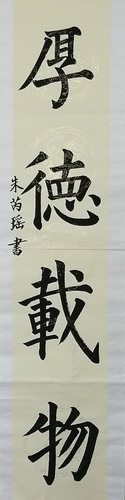 厚德載物
朱芮瑶書